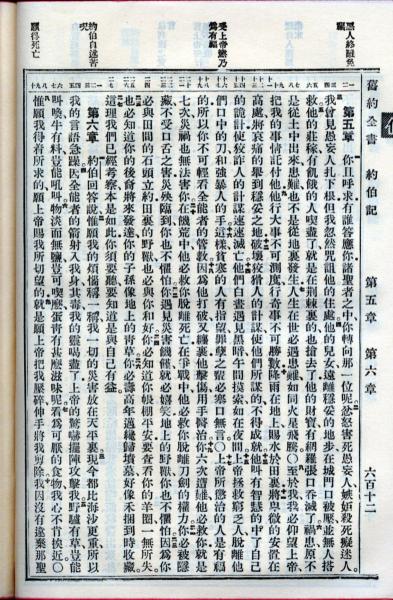 舊約全書 約伯記 第五章 第六章 六百十二
受上帝懲乃爲有福
願得死亡
第五章 你且呼求有誰答應你諸聖者之中你轉向那一位呢忿怒害死愚妄人嫉妒殺死癡迷人
我曾見愚妄人扎下根但我忽然咒詛他的住處他的兒女遠離穩妥的地步在城門口被壓並無人搭
救他的莊稼有飢餓的人喫盡了就是在荊棘裏的也搶去了他的財寶有網羅張口吞滅了禍患原不
是從土中出來患難也不是從地裏發生人生在世必遇患難如同火星飛騰○至於我我必仰望上帝
把我的事情託付他他行大事不可測度行奇事不可勝數降雨在地上賜水於田裏將卑微的安置在
高處將哀痛的舉到穩妥之地破壞狡猾人的計謀使他們所謀的不得成就他叫有智慧的中了自己
的詭計使狡詐人的計謀速速滅亡他們白晝遇見黑暗午間摸索如在夜間上帝拯救窮乏人脫離他
們口中的刀和強暴人的手這樣貧寒的人有指望罪孽之輩必塞口無言○上帝所懲治的人是有福
的所以你不可輕看全能者的管教因爲他打破又纏裹他擊傷用手醫治你六次遭難他必救你就是
七次災禍也無法害你在饑荒中他必救你脫離死亡在爭戰中他必救你脫離刀劍的權力你必被隱
藏不受口舌之害災殃臨到你也不懼怕你遇見災害饑饉就必嬉笑地上的野獸你也不懼怕因爲你
必與田間的石頭立約田裏的野獸也必與你和好你必知道你帳棚平安要查看你的羊圈一無所失
也必知道你的後裔將來發達你的子孫像地上的青草你必壽高年邁纔歸墳墓好像禾捆到時收藏
這理我們已經考察本是如此你須要聽要知道是與自己有益
第六章 約伯回答說惟願我的煩惱稱一稱我一切的災害放在天平裏現今都比海沙更重所以
我的言語急躁因全能者的箭射入我身其毒我的靈喝盡了上帝的驚嚇擺陣攻擊我野驢有草豈能
叫喚牛有料豈能吼叫物淡而無鹽豈可喫麼蛋青有甚麼滋味呢看爲可厭的食物我心不肯挨近○
惟願我得着所求的願上帝賜我所切望的就是願上帝把我壓碎伸手將我剪除我因沒有違棄那聖